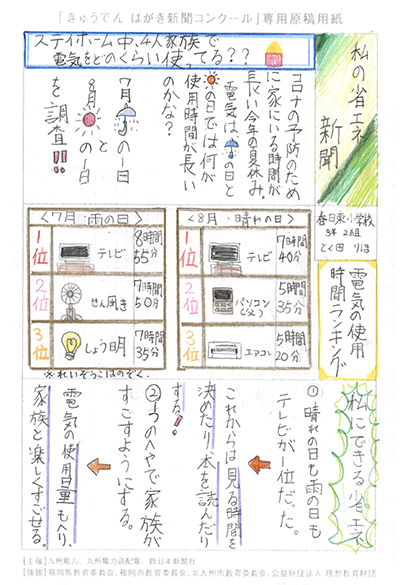 「きゅうでん はがき新聞コンクール」専用原稿用紙
私の省エネ
新聞
春日東小学校
3年2組
とく田 りほ
ステイホーム中、4人家族で
電気をどのくらい使ってる??
コロナの予防のため
に家にいる時間が
長い今年の夏休み。
電気は、の日と
の日では何が
使用時間が長い
のかな?
7月の一日
と
8月の一日
を調査!!
電気の使用
時間ランキング
<8月・晴れの日>
1位
テレビ
7時間
40分
2位
パソコン
(父)
5時間
35分
3位
エアコン
5時間
20分
<7月・雨の日>
1位
テレビ
8時間
55分
2位
せん風き
7時間
50分
3位
しょう明
7時間
35分
※れいぞうこはのぞく。
私にできる省エネ
①晴れの日も雨の日も
テレビが1位だった。
これからは見る時間を
決めたり、本を読んだり
する!
②1つのへやで家族が
すごすようにする。
電気の使用量もへり、
家族と楽しくすごせる。
[主催]九州電力、九州電力送配電、西日本新聞社
[後援]福岡県教育委員会、福岡市教育委員会、北九州市教育委員会、公益財団法人 理想教育財団